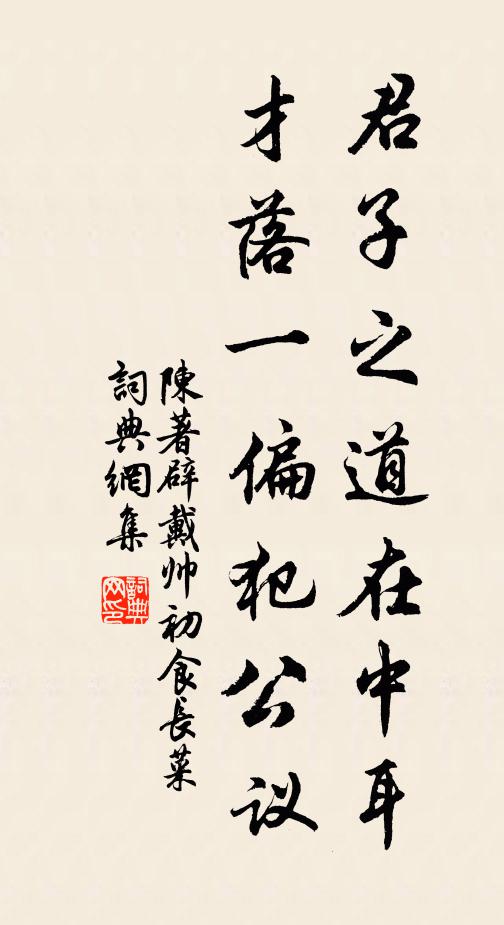 君子之道在中耳
才落一偏犯公议
陳著辟戴帅初食長菜
詞典網集